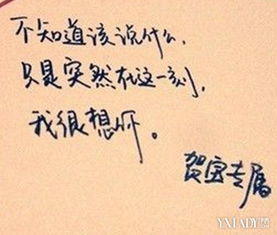 不知道该说什么,
只是突然在这一刻,
我很想你。
贺宝专属
YXLADY.COM